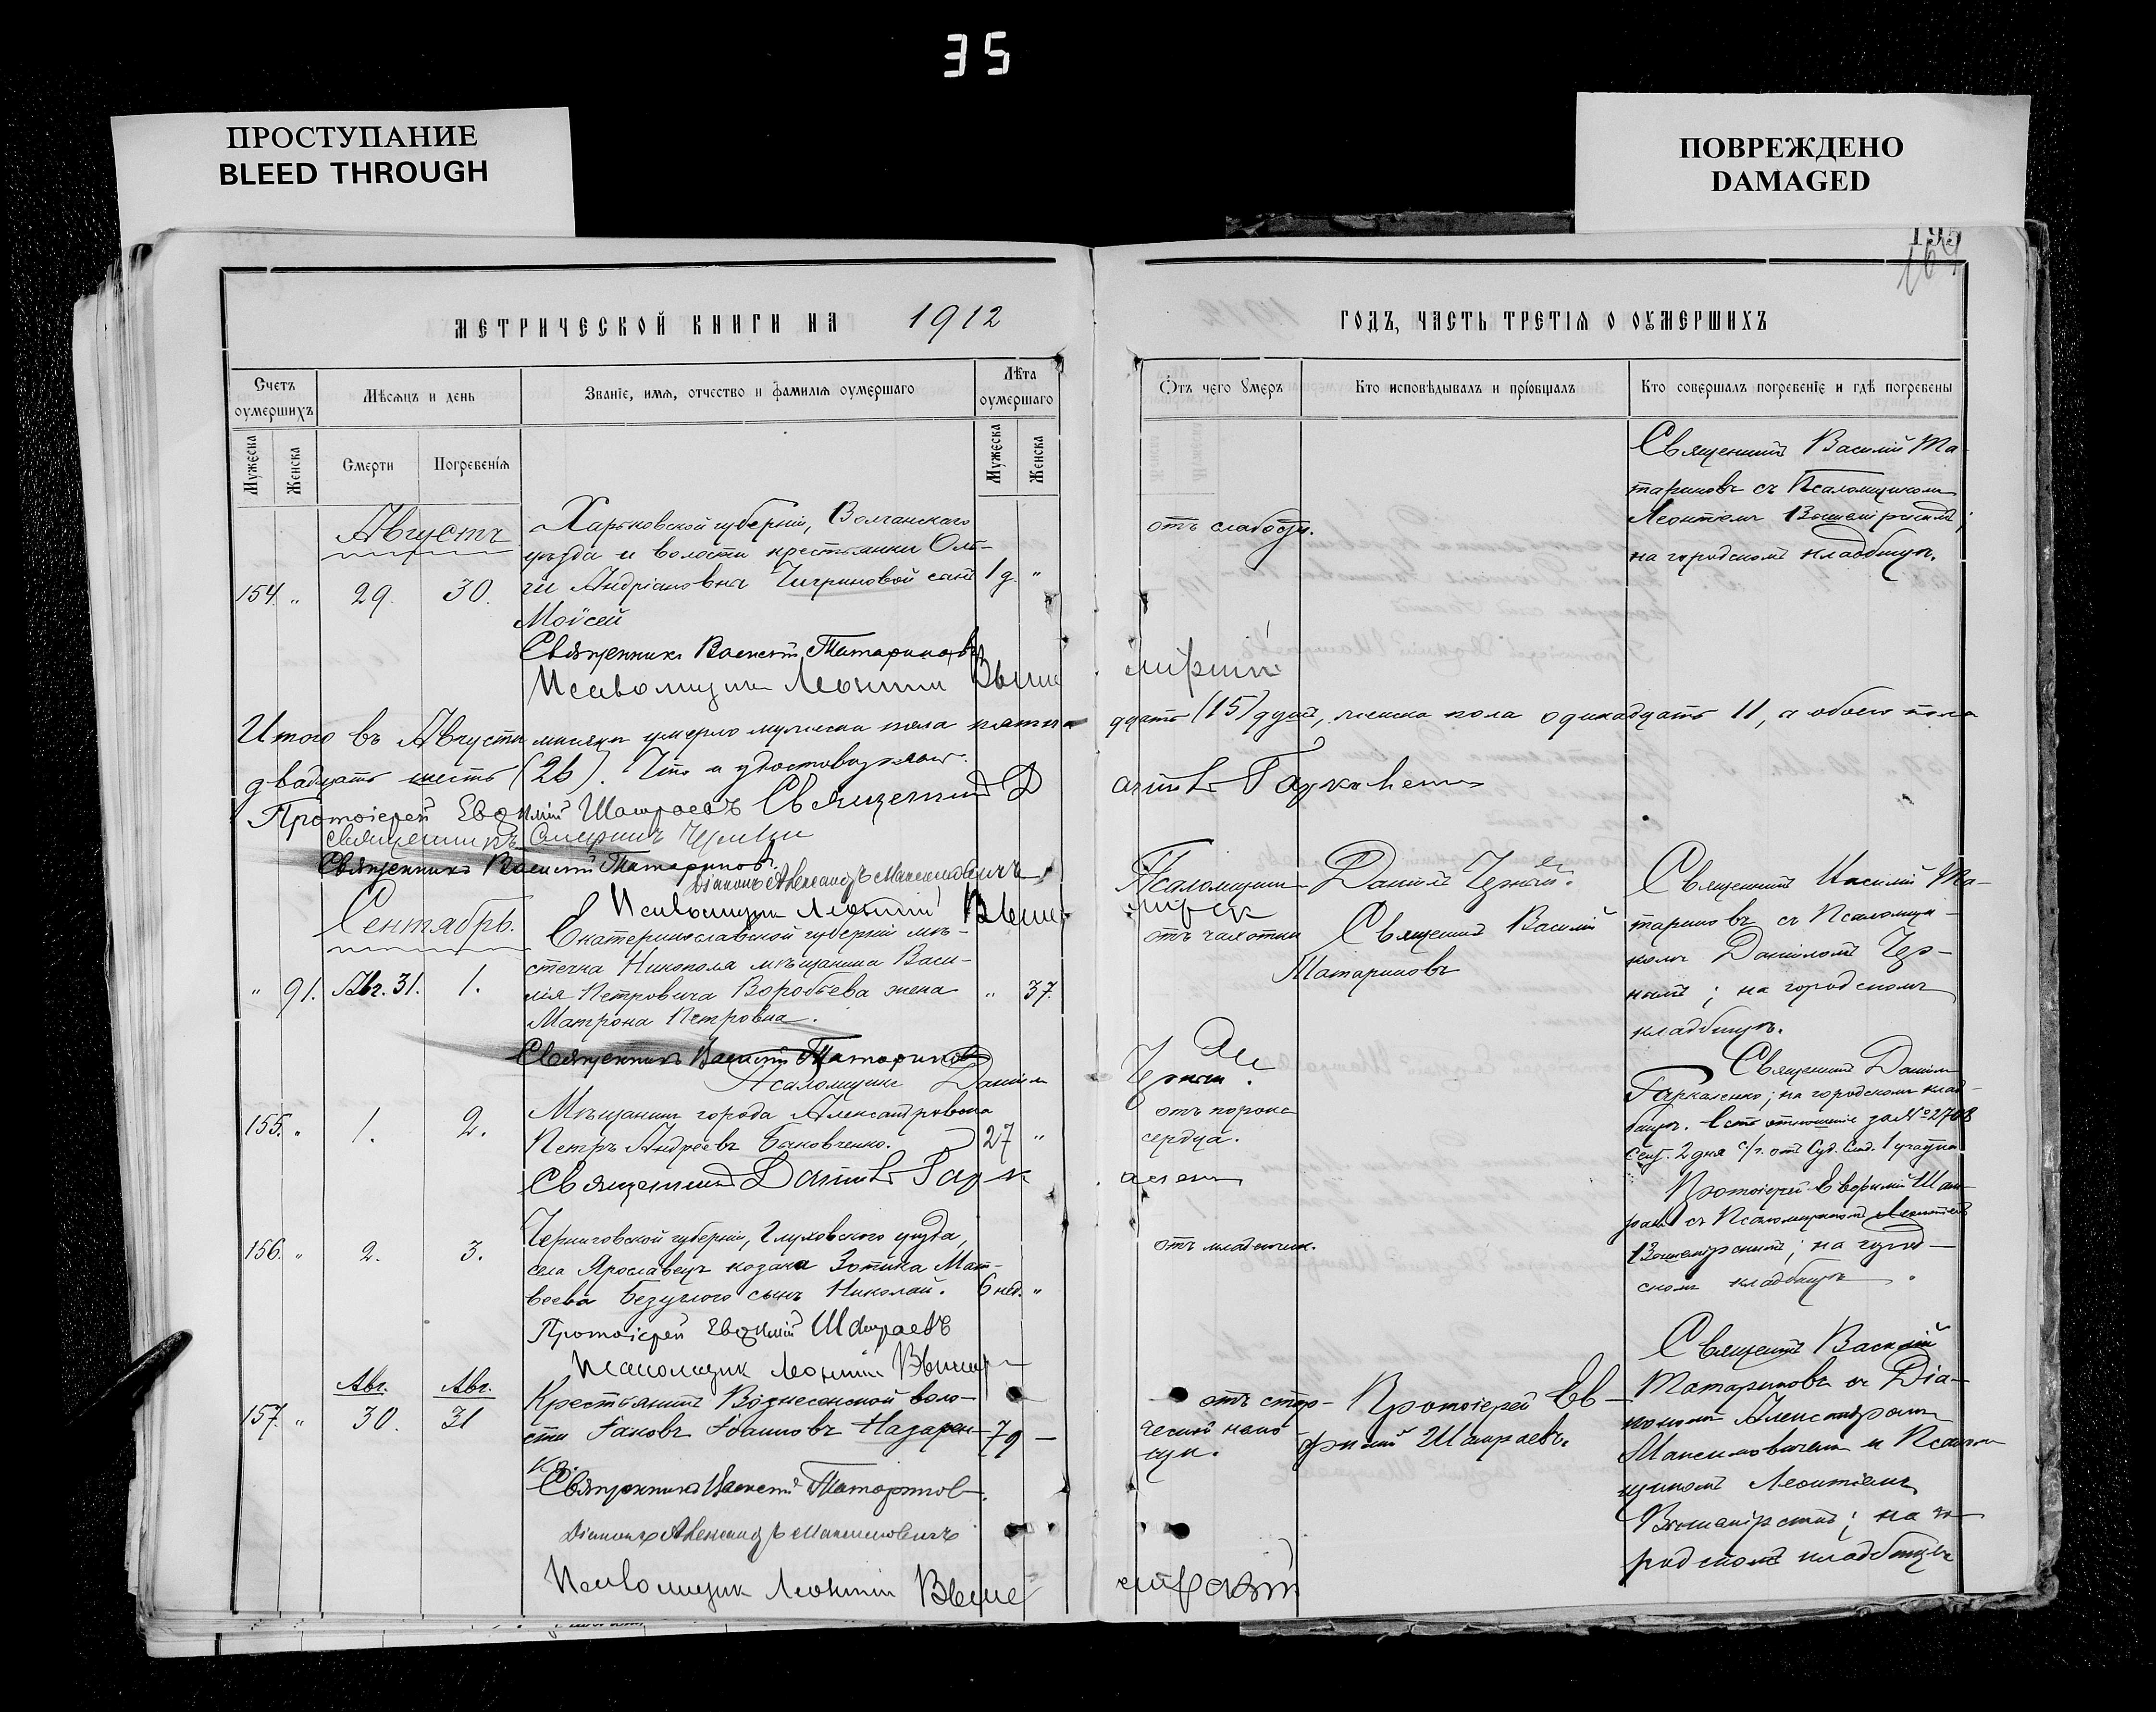 35
ПРОСТУПАНИЕ
BLEED THROUGH
ПОВРЕЖДЕНО
DAMAGED
195
МЕТРИЧЕСКОЙ КНИГИ НА 1912
ГОДЪ, ЧАСТЬ ТРЕТІЯ О ОУМЕРШИХЪ
Счетъ оумершихъ
Мѣсяцъ и день
Званіе, имя, отчество и фамилія оумершаго
Лѣта оумершаго
Мужеска
Женска
Смерти
Погребенія
Мужеска
Женска
Отъ чего умеръ
Кто исповѣдывалъ и пріобщалъ
Кто совершалъ погребеніе и гдѣ погребены
Августъ
154. " 29. 30.
Харьковской губерніи, Волчанскаго
уѣзда и волости крестьянки Оль-
ги Андріановны Чигриновой сынъ
Моисей
1 г. "
отъ слабости.
Священникъ Василій Та-
тариновъ съ Псаломщикомъ
Леонтіемъ Вышемірскимъ;
на городскомъ кладбищѣ.
Священникъ Василій Татариновъ
Псаломщик Леонтій Выше
мірскій
Итого въ Августѣ мѣсяцѣ умерло мужеска пола пятна
дцать (15) душъ, женска пола одинадцать 11, а обоего пола
двадцать шесть (26). Что и удостовѣряемъ.
Протоіерей Евфимій Шамраевъ Священникъ Д
аніилъ Гаркавенко
Священникъ
Священникъ Василій Татариновъ
Діаконъ Александръ Максимовичъ
Псаломщикъ Даніилъ Черный.
Псаломщик Леонтій Выше
мірск
Сентябрь.
" 91. Авг. 31. 1.
Екатеринославской губерніи мѣ-
стечка Никополя мѣщанина Васи-
лія Петровича Воробьева жена
Матрона Петровна.
" 37.
отъ чахотки
Священникъ Василій
Татариновъ
Священникъ Василій Та-
тариновъ съ Псаломщи-
комъ Даніиломъ Чер-
нымъ; на городскомъ
кладбищѣ.
Священникъ Василій Татариновъ
Псаломщикъ Даніилъ
Черный.
155. " 1. 2.
Мѣщанинъ города Александровска
Петръ Андреевъ
27 "
отъ порока
сердца.
Священникъ Даніилъ
Гаркавенко; на городскомъ клад-
бищѣ. Есть отношеніе за №2708
Сент. 2 дня с/г. отъ Суд. Слѣд. 1 участка
Священникъ Даніилъ Гарк
авенко
156. " 2. 3.
Черниговской губерніи, Глуховскаго уѣзда,
села Ярославецъ козака Зотика Мат-
веева Безуглого сынъ Николай.
6 нед. "
отъ младенчик.
Протоіерей Евфимій Шам-
раевъ съ Псаломщикомъ Леонтіемъ
Вышемірскимъ; на город-
скомъ кладбищѣ.
Протоіерей Евфимій Шамраевъ
Псаломщик Леонтій Вышемір
157. " Авг. 30. Авг. 31
Крестьянинъ Вознесенской воло-
сти Іаковъ Іоанновъ Назарен-
ко.
79 —
отъ стар-
ческой немо
щи.
Протоіерей Ев-
фимій Шамраевъ.
Священникъ Василій
Татариновъ съ Діа-
кономъ Александромъ
Максимовичемъ и Псалом
щикомъ Леонтіемъ
Вышемірскимъ; на го-
родскомъ кладбищѣ
Священникъ Василій Татариновъ.
Діаконъ Александръ Максимовичъ
Псаломщик Леонтій Выше
мірскій